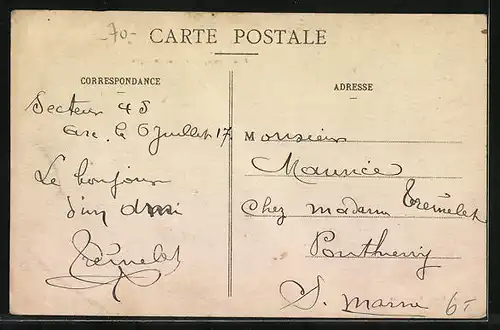 70-
CARTE POSTALE
CORRESPONDANCE
Secteur 45
le 6 Juillet 17
Le bonjour
d'un ami
Trémelet
ADRESSE
Monsieur
Maurice
Trémelet
Chez Madame
Ponthierry
S. Marne
6-